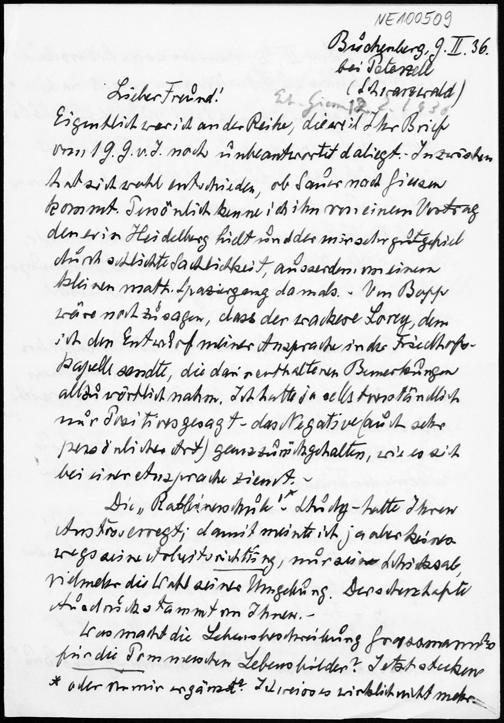 NE100509
Buchenberg, 9. II. 36.
bei Peterzell
(Schwarzwald)
Lieber Freund!
Eigentlich war ich an der Reihe, dieweil Ihr Brief
vom 19.9. v.J. noch unbeantwortet daliegt. Inzwischen
hat sich wohl entschieden, ob Sauer nach Giessen
kommt. Persönlich kenne ich ihn von einem Vortrag
den er in Heidelberg hielt und der mir sehr gut gefiel
durch schlichte Sachlichkeit, ausserdem von einem
kleinen math. Spaziergang damals. - Von Bopp
wäre noch zu sagen, dass der wackere Lorey, dem
ich den Entwurf meiner Ansprache in der Friedhofs-
kapelle sandte, die darin enthaltenen Bemerkungen
allzu wörtlich nahm. Ich hatte ja selbstverständlich
nur Positives gesagt - das Negative (auch sehr
persönlicher Art) ganz zurückgehalten, wie es sich
bei einer Ansprache ziemt. -
Die „Rabbinerschule"* - hatte Ihren
Anstoss erregt; damit meinte ich ja aber keines-
wegs seine Arbeitsrichtung, nur seine Schicksal,
vielmehr die Wahl seiner Umgebung. Der scherzhafte
Ausdruck stammt von Ihnen. -
Was macht die Lebensbeschreibung Grassmann's
für die Pommerschen Lebensbilder? Jetzt stecken
* oder von mir ergänzt? Ich weiss es wirklich nicht mehr.